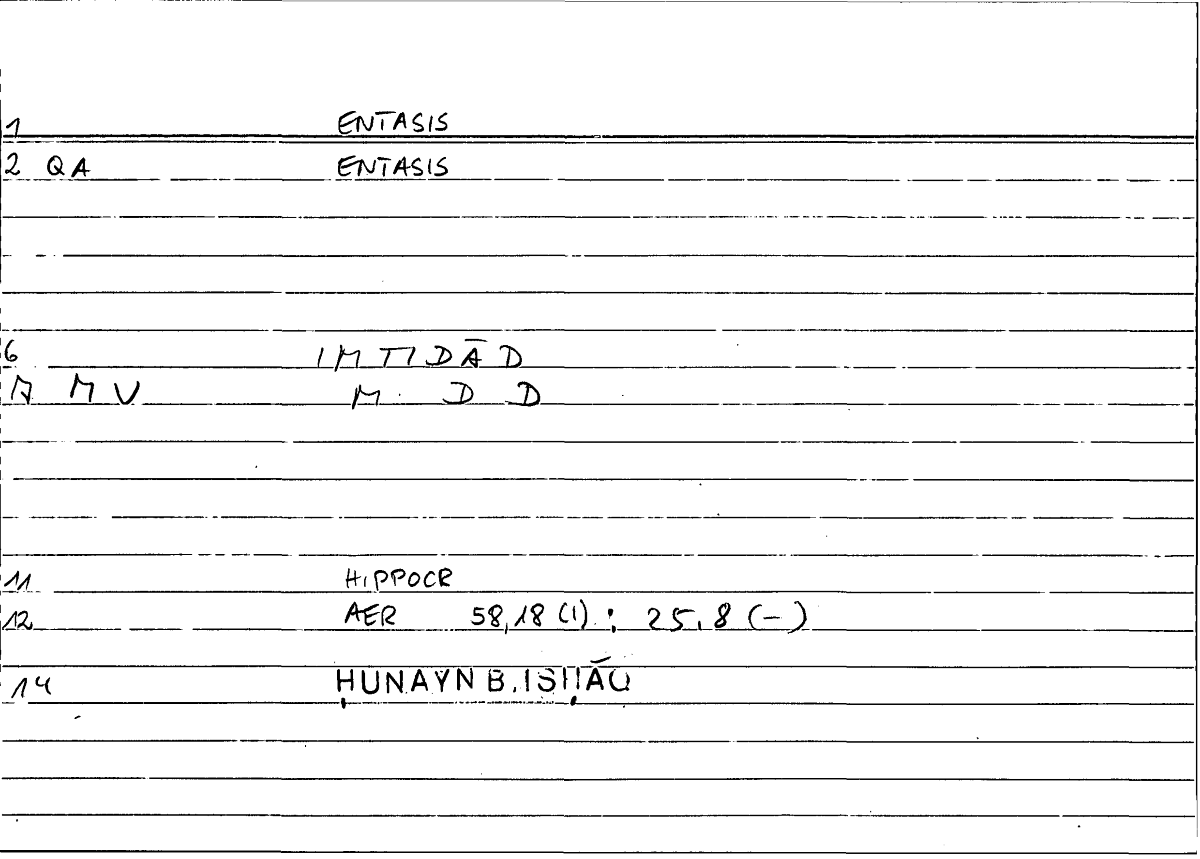 1 ENTASIS
2 QA ENTASIS
6 IMTIDĀD
A MV M D D
11 HIPPOCR
12 AER 58,18 (1) : 25,8 (-)
14 ḤUNAYN B. ISḤĀQ